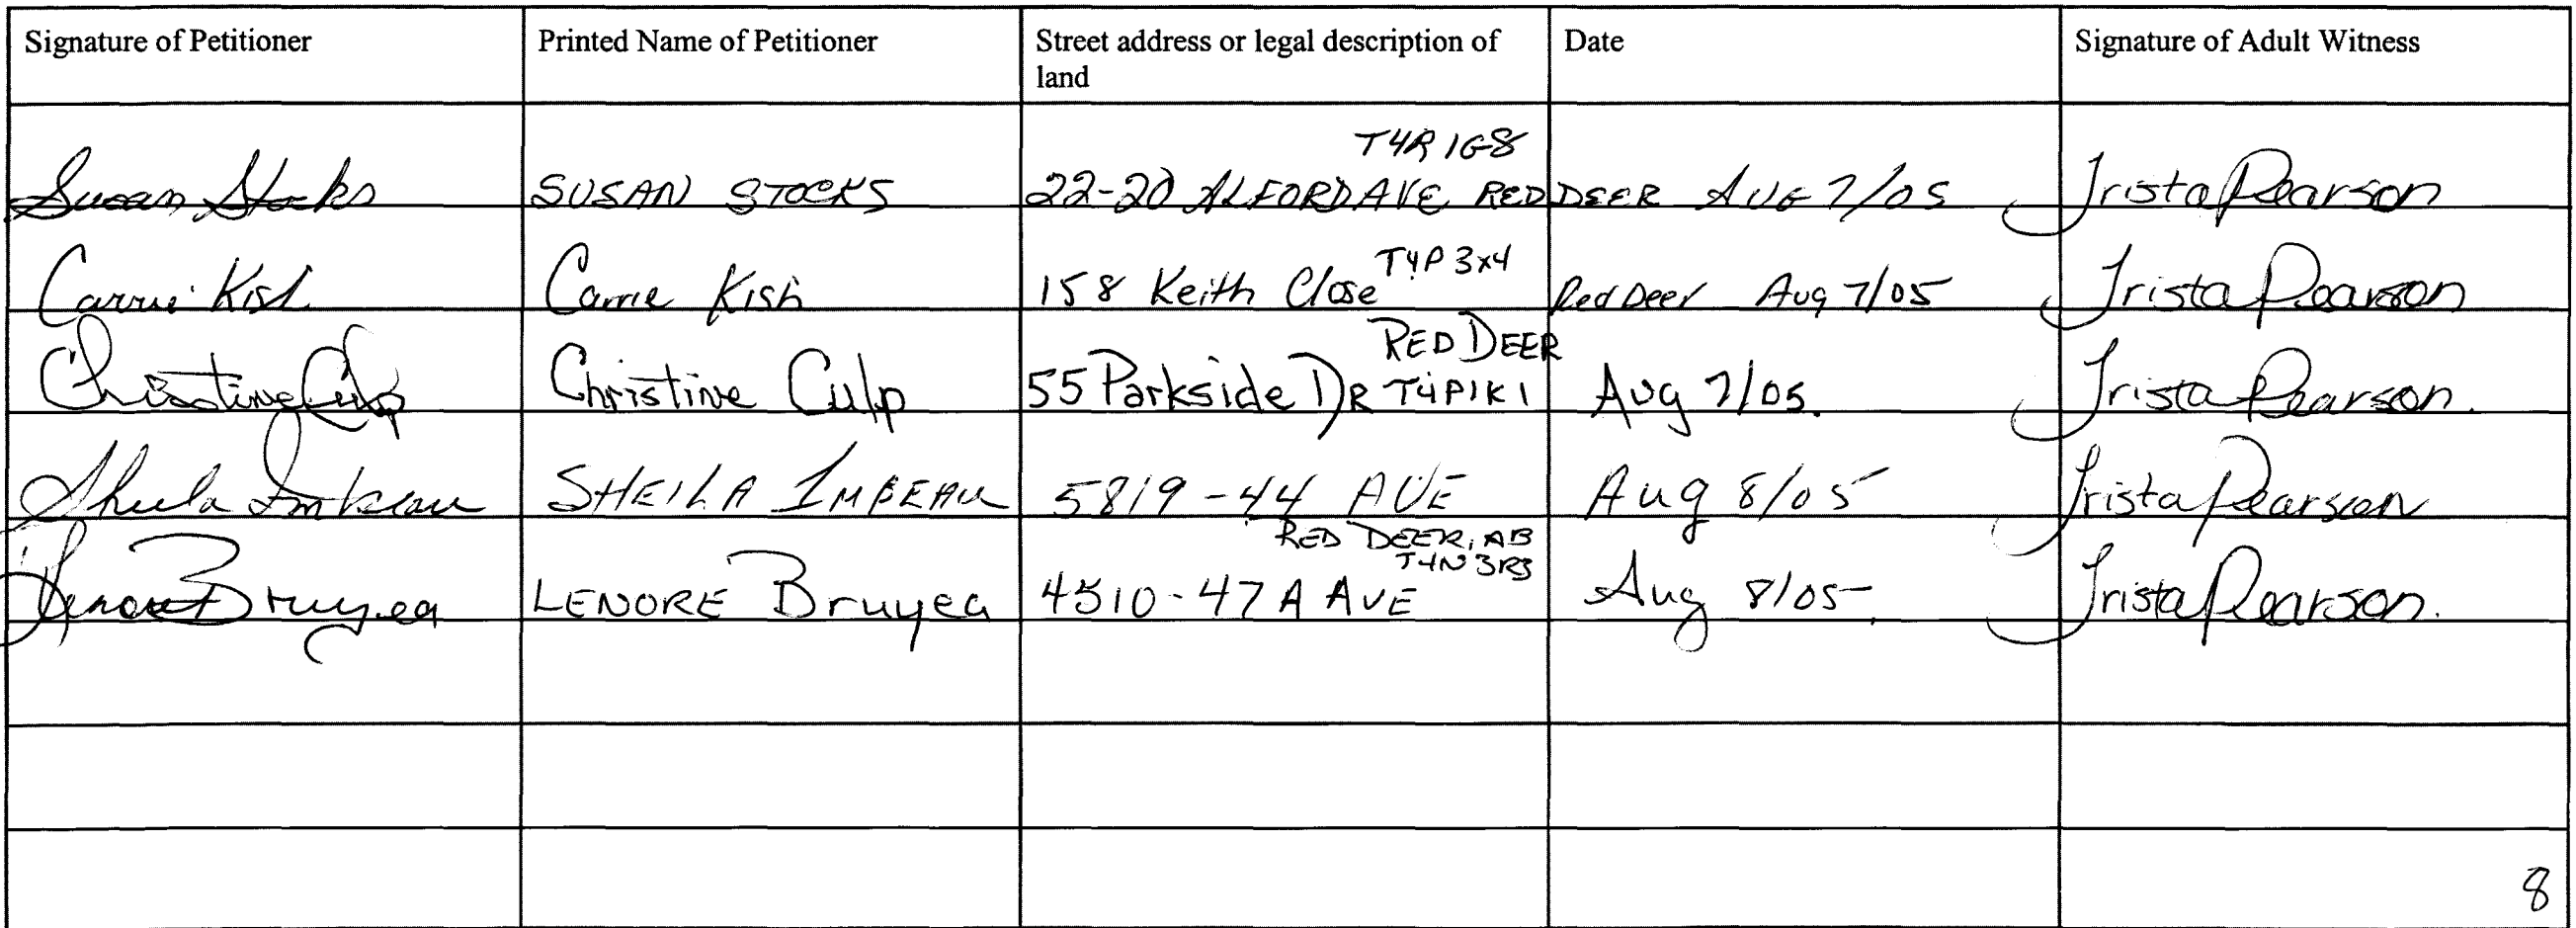 Signature of Petitioner
Printed Name of Petitioner
Street address or legal description of
land
Date
Signature of Adult Witness
T4R 1G8
Susan Stocks
SUSAN STOCKS
22-20 ALFORD AVE RED DEER
AUG 7/05
Trista Pearson
T4P 3x4
Carrie Kish
Carrie Kish
158 Keith Close
Red Deer Aug 7/05
Trista Pearson
RED DEER
Christine Culp
Christine Culp
55 Parkside DR T4P1K1
Aug 7/05.
Trista Pearson.
Sheila Imbeau
SHEILA IMBEAU
5819-44 AVE
Aug 8/05
Trista Pearson
RED DEER, AB
T4N 3R3
Lenore Bruyea
LENORE Bruyea
4510-47 A AVE
Aug 8/05
Trista Pearson.
8